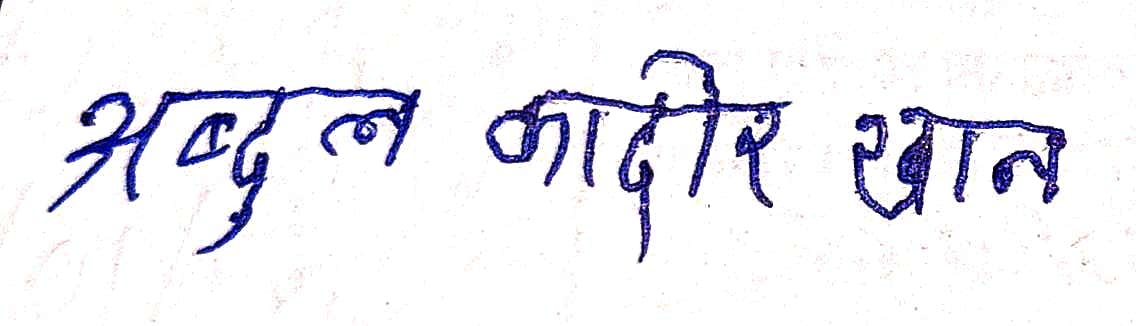 अब्दुल कादीर खान